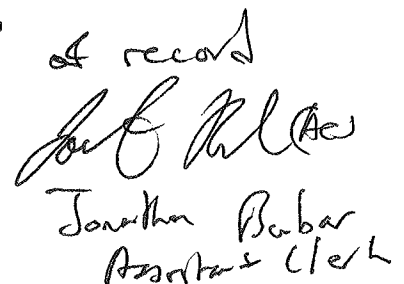 of record
(AC)
Jonathan Barbar
Assistant Clerk